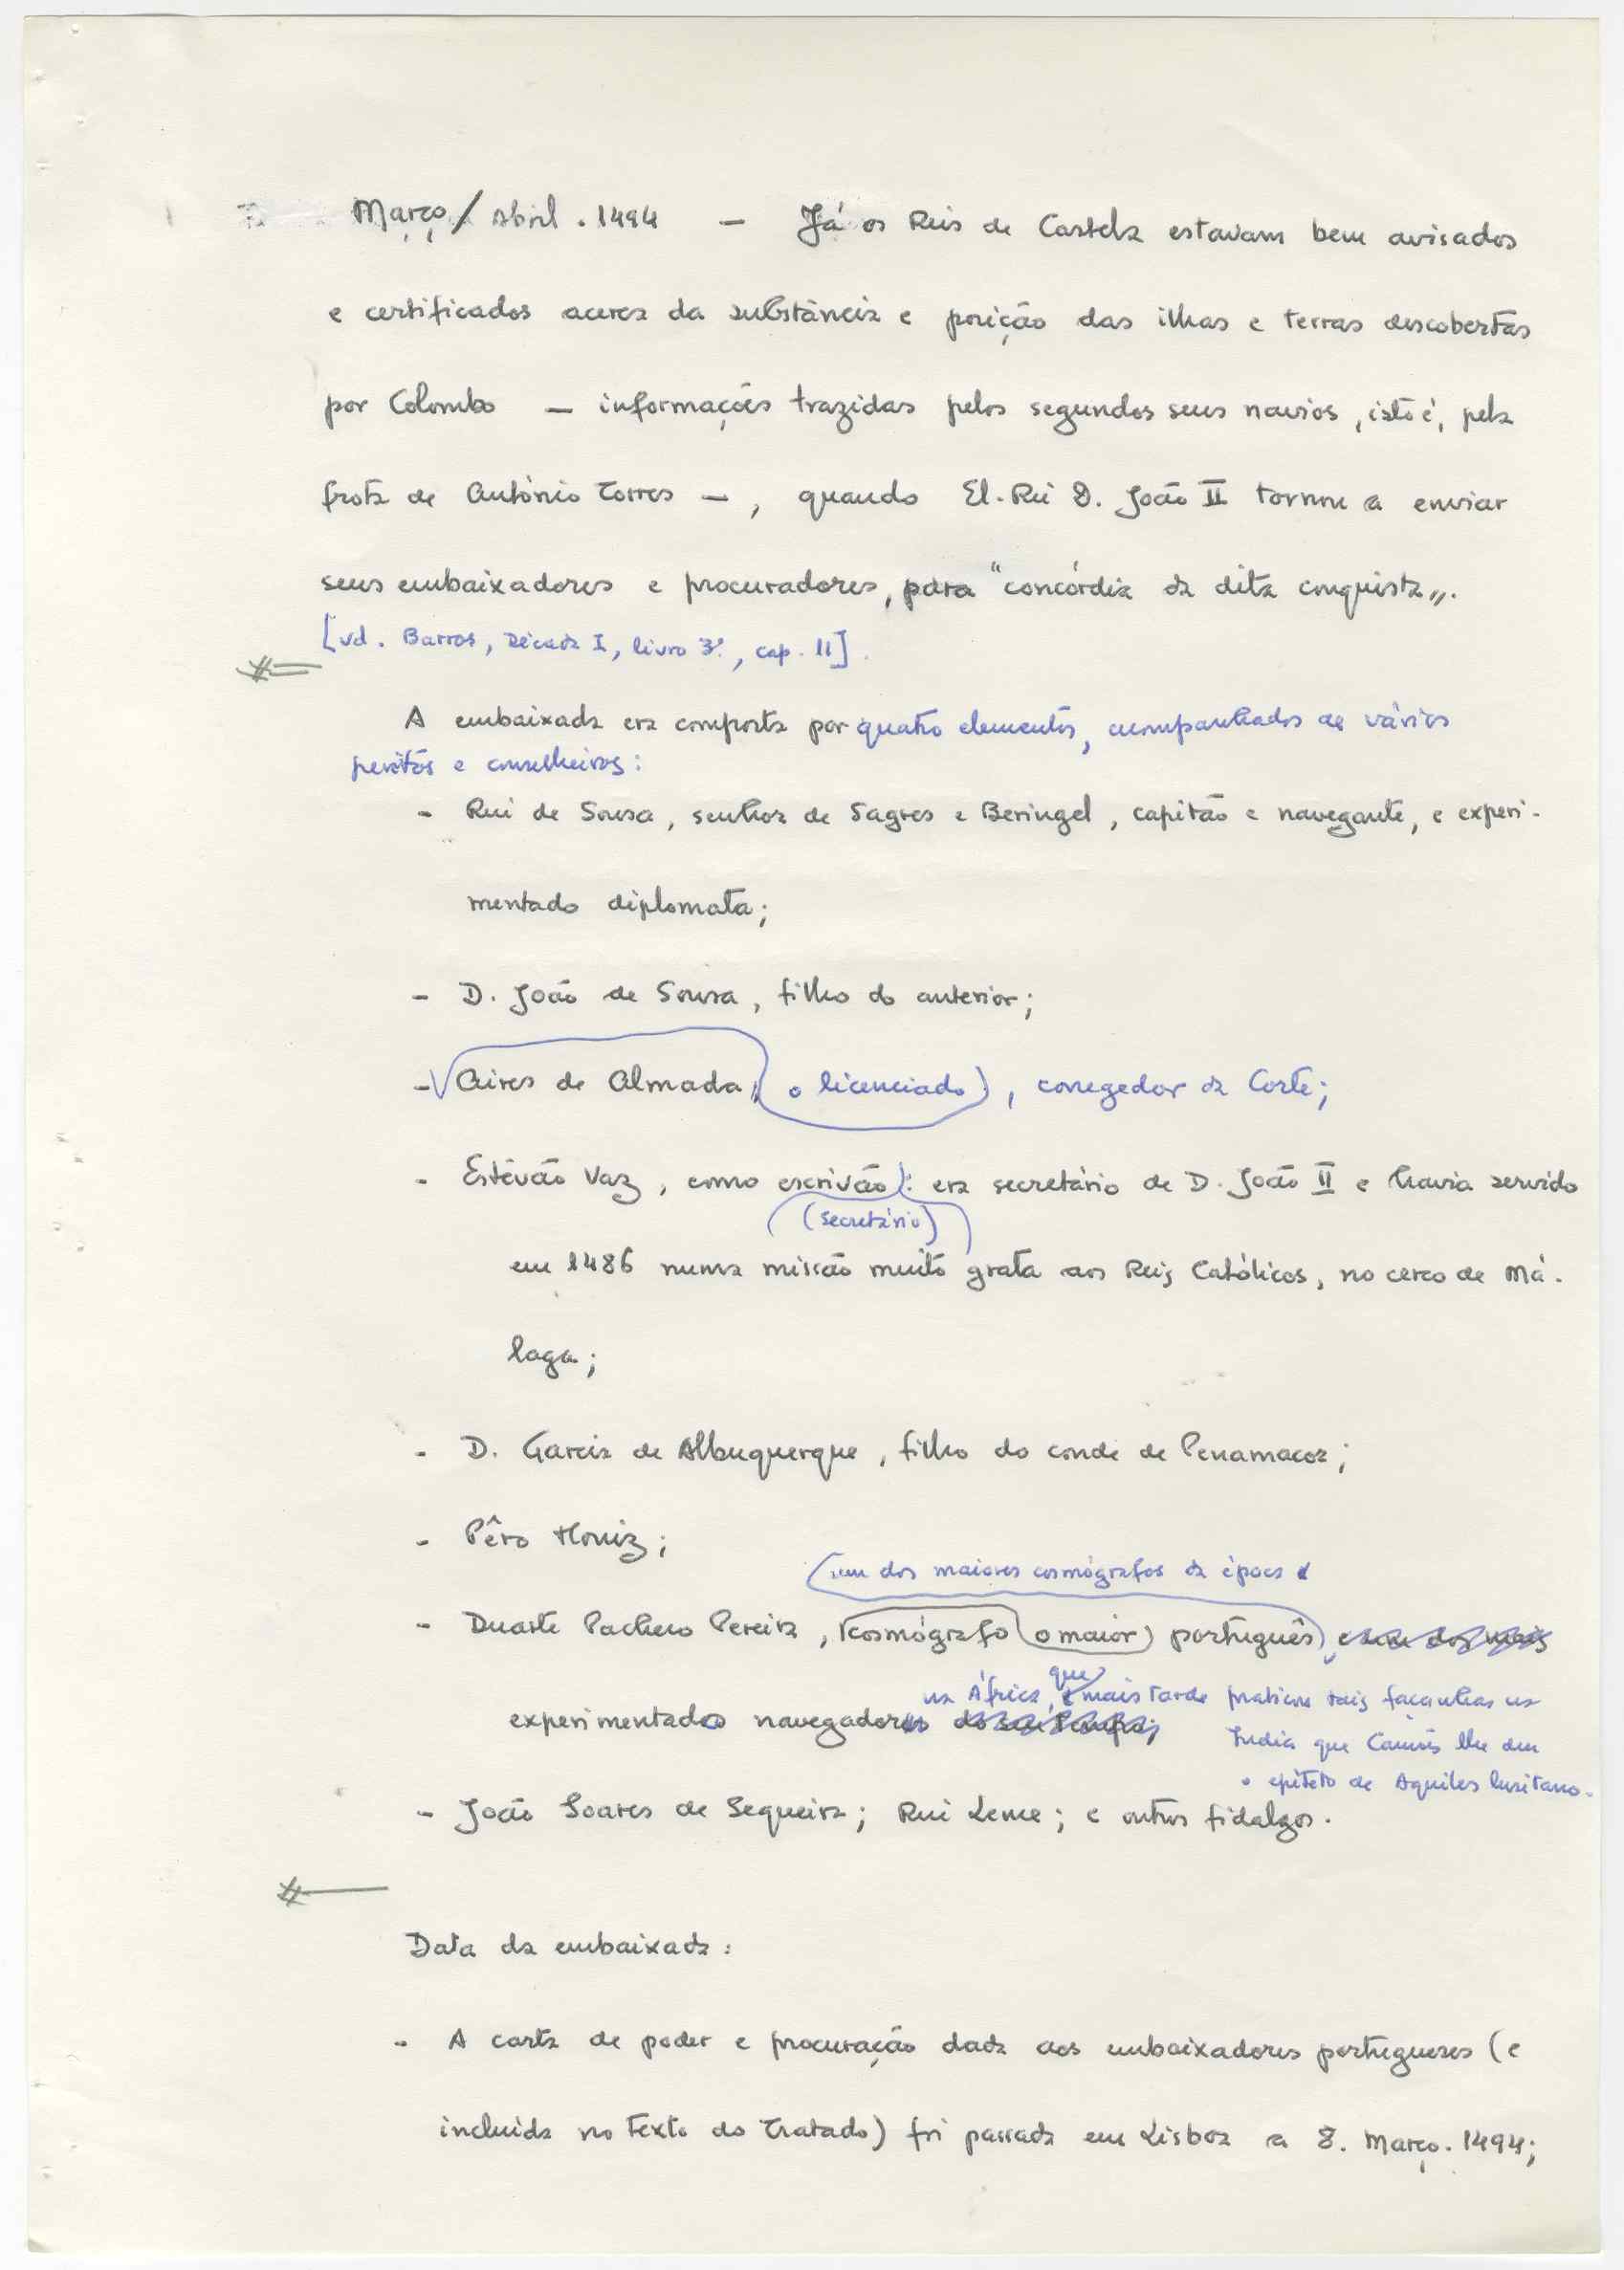 Março / Abril . 1494 — Já os Reis de Castela estavam bem avisados
e certificados acerca da substância e posição das ilhas e terras descobertas
por Colombo — informações trazidas pelos segundos seus navios, isto é, pela
frota de António Torres —, quando El-Rei D. João II tornou a enviar
seus embaixadores e procuradores, para "concórdia da dita conquista".
[vd. Barros, Década I, livro 3º, cap. 11].
A embaixada era composta por quatro elementos, acompanhados de vários
peritos e conselheiros:
- Rui de Sousa, senhor de Sagres e Beringel, capitão e navegante, e experi-
mentado diplomata;
- D. João de Sousa, filho do anterior;
- Aires de Almada, o licenciado, corregedor da Corte;
- Estêvão Vaz, como escrivão: era secretário de D. João II e havia servido
(secretário)
em 1486 numa missão muito grata aos Reis Católicos, no cerco de Má-
laga;
- D. Garcia de Albuquerque, filho do conde de Penamacor;
- Pêro Moniz;
um dos maiores cosmógrafos da época e
- Duarte Pacheco Pereira, cosmógrafo o maior português, e um dos mais
na África, que mais tarde praticou tais façanhas na
experimentado navegadores do seu tempo;
Índia que Camões lhe deu
o epíteto de Aquiles lusitano.
- João Soares de Sequeira; Rui Leme; e outros fidalgos.
Data da embaixada:
- A carta de poder e procuração dada aos embaixadores portugueses (e
incluída no texto do Tratado) foi passada em Lisboa a 8. Março. 1494;